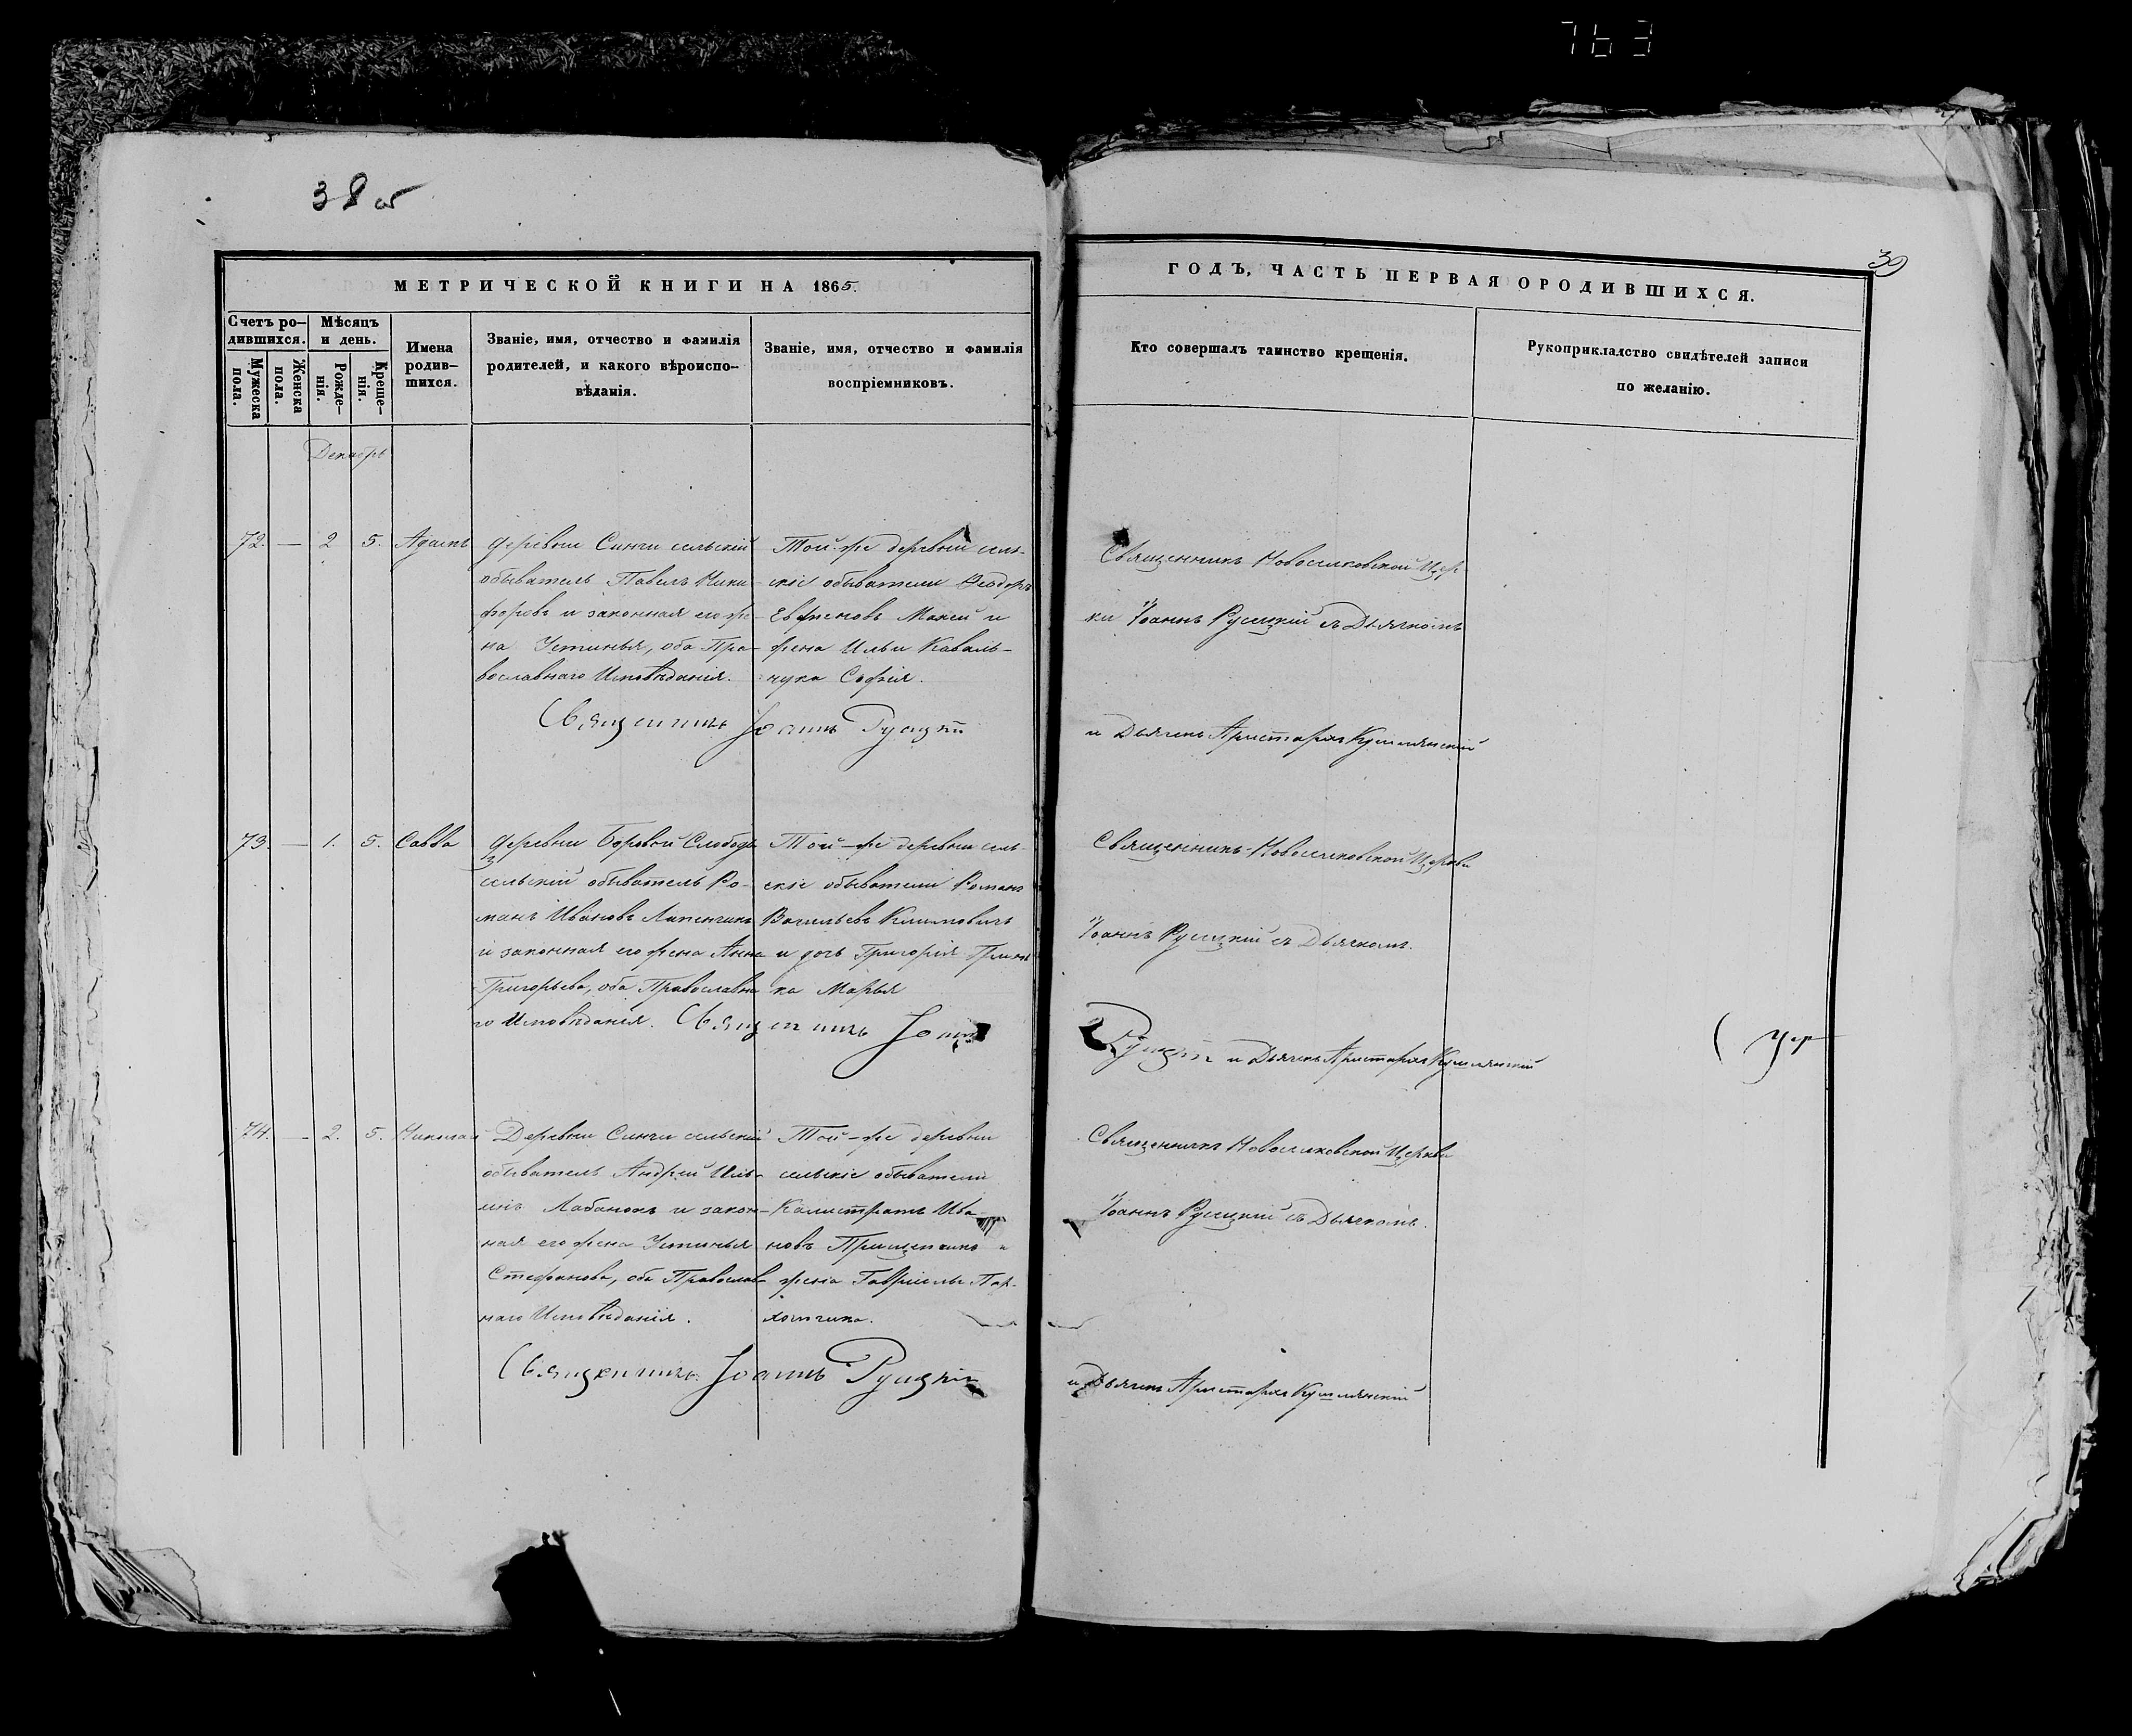 763
38 об
39
МЕТРИЧЕСКОЙ КНИГИ НА 1865.
ГОДЪ, ЧАСТЬ ПЕРВАЯ ОРОДИВШИХСЯ.
Счетъ ро-
дившихся.
Мужеска
пола.
Женска
пола.
Мѣсяцъ
и день.
Рожде-
нія.
Креще-
нія.
Имена
родив-
шихся.
Званіе, имя, отчество и фамилія
родителей, и какого вѣроиспо-
вѣданія.
Званіе, имя, отчество и фамилія
воспріемниковъ.
Кто совершалъ таинство крещенія.
Рукоприкладство свидѣтелей записи
по желанію.
Декабрь
72. — 2 5. Адамъ
деревни Синчи сельскій
обыватель Павелъ Ники-
форовъ и законная его же-
на Устинья, оба Пра-
вославнаго Исповѣданія.
Той-же деревни сель-
скіе обыватели Ѳеодоръ
и
жена Ильи Коваль-
чука Софія.
Священникъ Новоселковской Цер
кви Іоаннъ Русецкій съ Дьячкомъ
Священникъ Іоаннъ Русецкій
и Дьячекъ Аристархъ
73. — 1. 5. Савва
деревни Боровой Слободы
сельскій обыватель Ро-
манъ Ивановъ
и законная его жена Анна
Григорьева, оба Православна
го Исповѣданія.
Той-же деревни сель-
скіе обыватели Романъ
Васильевъ Климовичъ
и дочь Григорія
ка Марья
Священникъ Новоселковской Церкви
Іоаннъ Русецкій съ Дьячкомъ.
Священникъ Іоаннъ
Русецкій и Дьячекъ Аристархъ
74. — 2. 5. Николай
Деревни Синчи сельскій
обыватель Андрей Иль-
инъ Лабанокъ и закон-
ная его жена Устинья
Стефанова, оба Православ
наго Исповѣданія.
Той-же деревни
сельскіе обыватели
Калистратъ Ива-
новъ и
жена Гавріила Пар-
Священникъ Новоселковской Церкви
Іоаннъ Русецкій съ Дьячкомъ.
Священникъ Іоаннъ Русецкій
и Дьячекъ Аристархъ